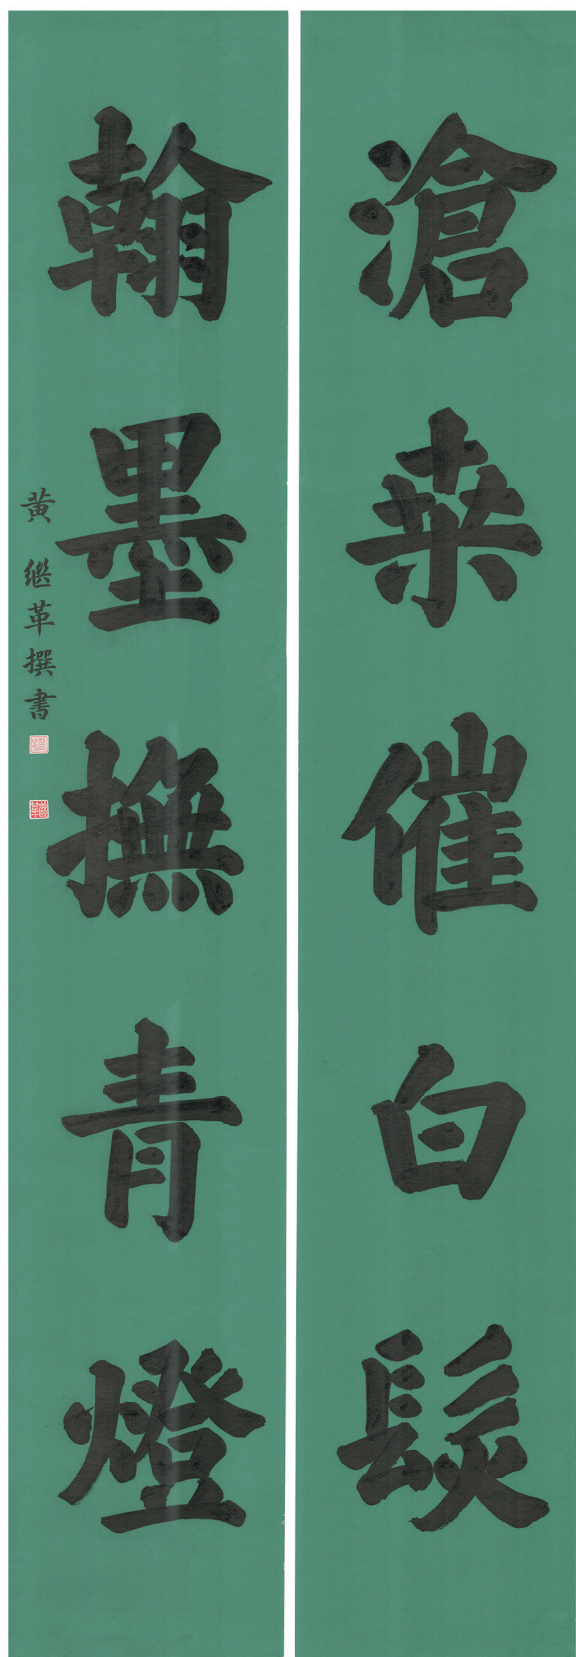 滄桒催白髮
翰墨撫青燈
黄继革撰書